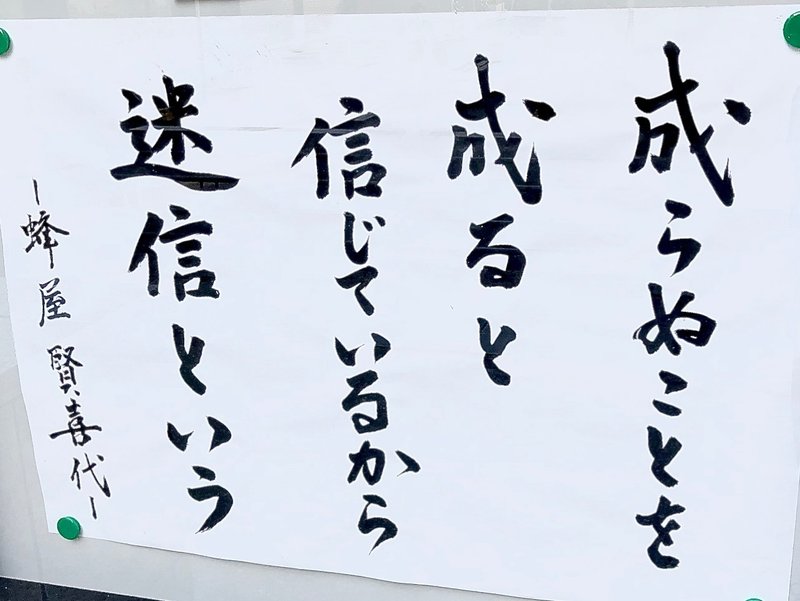 成らぬことを
成ると
信じているから
迷信という
ー蜂屋 賢喜代ー